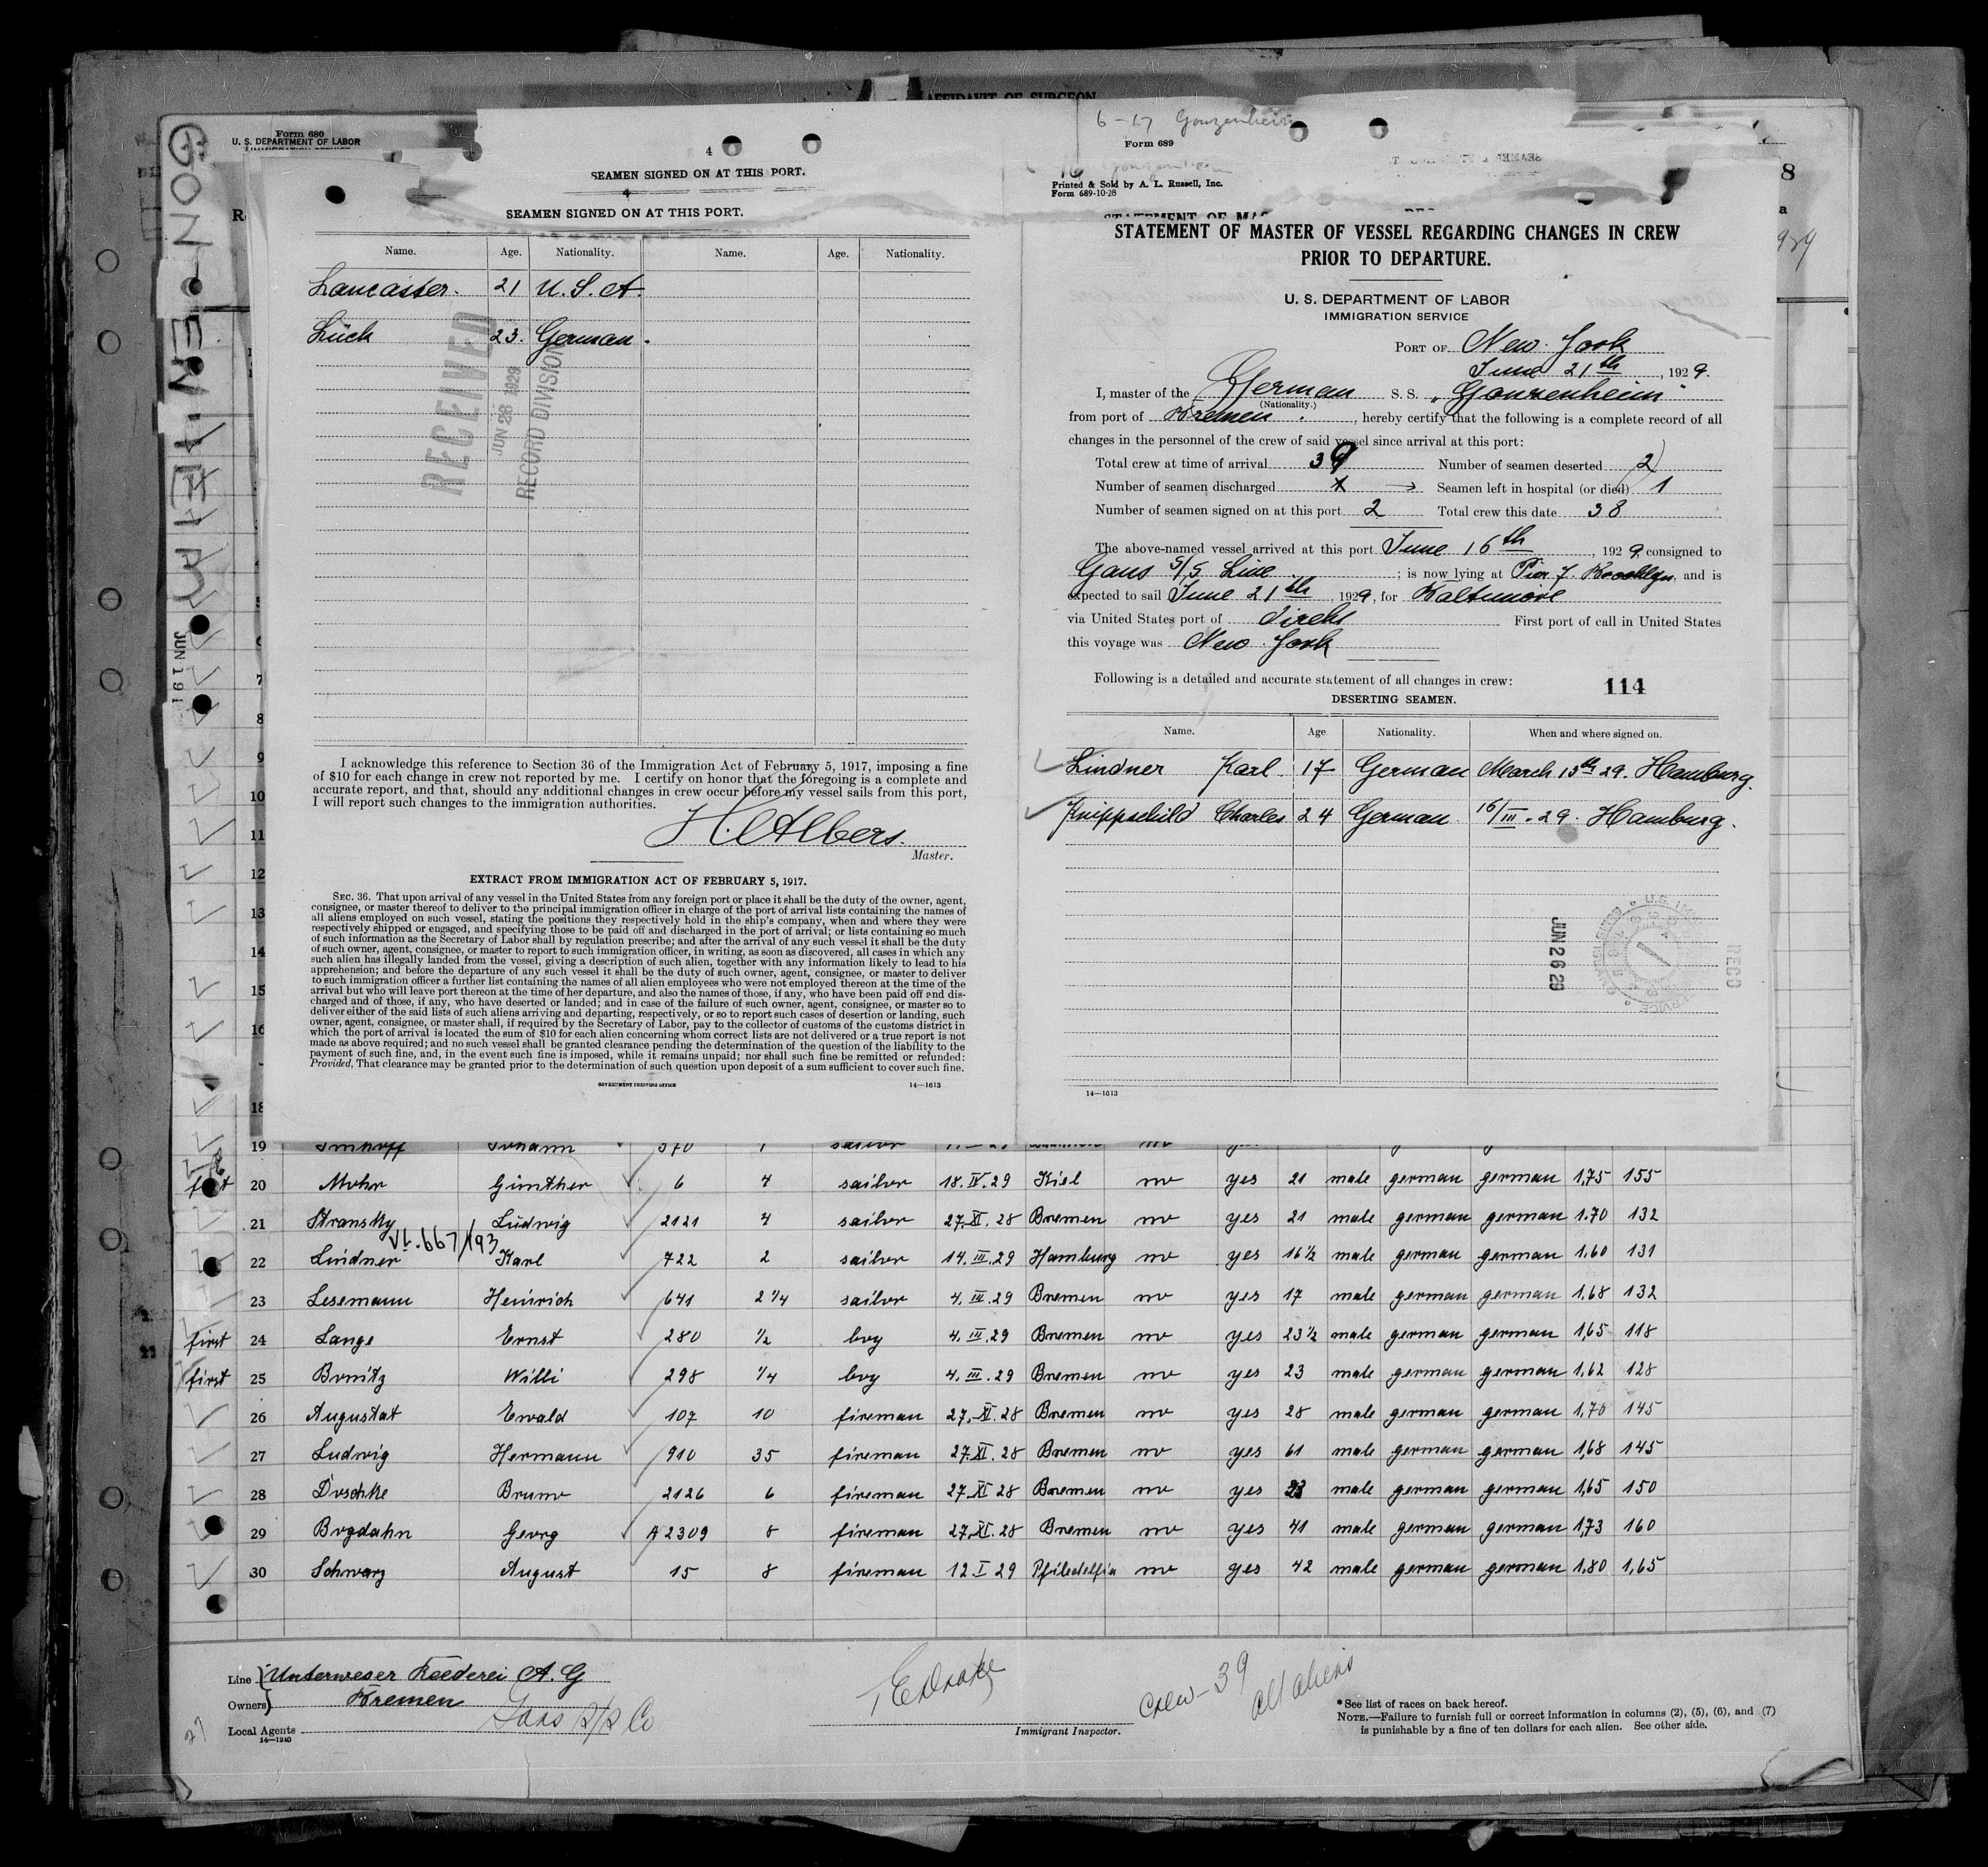 AFFIDAVIT OF SURGEON
GONZENHEIM
JUN 19
Form 680
U. S. DEPARTMENT OF LABOR
4
SEAMEN SIGNED ON AT THIS PORT.
4
SEAMEN SIGNED ON AT THIS PORT.
Name. Age. Nationality. Name. Age. Nationality.
Lancaster. 21 U. S. A.
Lück 23. German.
RECEIVED
JUN 28 1929
RECORD DIVISION
I acknowledge this reference to Section 36 of the Immigration Act of February 5, 1917, imposing a fine
of $10 for each change in crew not reported by me. I certify on honor that the foregoing is a complete and
accurate report, and that, should any additional changes in crew occur before my vessel sails from this port,
I will report such changes to the immigration authorities.
H. Albers.
Master.
EXTRACT FROM IMMIGRATION ACT OF FEBRUARY 5, 1917.
SEC. 36. That upon arrival of any vessel in the United States from any foreign port or place it shall be the duty of the owner, agent,
consignee, or master thereof to deliver to the principal immigration officer in charge of the port of arrival lists containing the names of
all aliens employed on such vessel, stating the positions they respectively hold in the ship's company, when and where they were
respectively shipped or engaged, and specifying those to be paid off and discharged in the port of arrival; or lists containing so much
of such information as the Secretary of Labor shall by regulation prescribe; and after the arrival of any such vessel it shall be the duty
of such owner, agent, consignee, or master to report to such immigration officer, in writing, as soon as discovered, all cases in which any
such alien has illegally landed from the vessel, giving a description of such alien, together with any information likely to lead to his
apprehension; and before the departure of any such vessel it shall be the duty of such owner, agent, consignee, or master to deliver
to such immigration officer a further list containing the names of all alien employees who were not employed thereon at the time of the
arrival but who will leave port thereon at the time of her departure, and also the names of those, if any, who have been paid off and dis-
charged and of those, if any, who have deserted or landed; and in case of the failure of such owner, agent, consignee, or master so to
deliver either of the said lists of such aliens arriving and departing, respectively, or so to report such cases of desertion or landing, such
owner, agent, consignee, or master shall, if required by the Secretary of Labor, pay to the collector of customs of the customs district in
which the port of arrival is located the sum of $10 for each alien concerning whom correct lists are not delivered or a true report is not
made as above required; and no such vessel shall be granted clearance pending the determination of the question of the liability to the
payment of such fine, and, in the event such fine is imposed, while it remains unpaid; nor shall such fine be remitted or refunded:
Provided, That clearance may be granted prior to the determination of such question upon deposit of a sum sufficient to cover such fine.
GOVERNMENT PRINTING OFFICE 14—1613
6-17 Gonzenheim
Form 689
Printed & Sold by A. L. Russell, Inc.
Form 689-10-28
STATEMENT OF MASTER OF VESSEL REGARDING CHANGES IN CREW
PRIOR TO DEPARTURE.
U. S. DEPARTMENT OF LABOR
IMMIGRATION SERVICE
PORT OF New York
June 21th, 1929.
I, master of the German S. S. „Gonzenheim"
(Nationality.)
from port of Bremen, hereby certify that the following is a complete record of all
changes in the personnel of the crew of said vessel since arrival at this port:
Total crew at time of arrival 39 Number of seamen deserted 2
Number of seamen discharged x → Seamen left in hospital (or died) 1
Number of seamen signed on at this port 2 Total crew this date 38
The above-named vessel arrived at this port June 16th, 1929, consigned to
Gans S/S Line; is now lying at Pier 7. Brooklyn, and is
expected to sail June 21th, 1929, for Baltimore
via United States port of direkt First port of call in United States
this voyage was New York
Following is a detailed and accurate statement of all changes in crew: 114
DESERTING SEAMEN.
Name. Age Nationality. When and where signed on.
Lindner Karl 17 German March 13th 29. Hamburg.
Knippschild Charles 24 German. 16/III. 29. Hamburg.
JUN 26 29
REC'D
14—1613
8
7
8
9
10
11
12
13
14
15
16
18
19 Imhoff Johann 370 1 sailor
first 20 Mohr Günther 6 4 sailor 18. IV. 29 Kiel no yes 21 male german german 1,75 155
21 Stransky Lüdwig 2121 4 sailor 27. XI. 28 Bremen no yes 21 male german german 1.70 132
22 Lindner Karl 722 2 sailor 14. III. 29 Hamburg no yes 16½ male german german 1.60 131
23 Lesemann Heinrich 641 2¼ sailor 4. III. 29 Bremen no yes 17 male german german 1,68 132
first 24 Lange Ernst 280 ½ boy 4. III. 29 Bremen no yes 23½ male german german 1,65 118
first 25 Bonitz Willi 298 ¼ boy 4. III. 29 Bremen no yes 23 male german german 1,62 128
26 Augustat Ewald 107 10 fireman 27. XI. 28 Bremen no yes 28 male german german 1,70 145
27 Ludwig Hermann 910 35 fireman 27. XI. 28 Bremen no yes 61 male german german 1,68 145
28 Doschke Bruno 2126 6 fireman 27. XI 28 Bremen no yes male german german 1,65 150
29 Bogdahn Georg A 2309 8 fireman 27. XI. 28 Bremen no yes 41 male german german 1,73 160
30 Schwarz August 15 8 fireman 12 I 29 Philedelfia no yes 42 male german german 1,80 1,65
Line Unterweser Reederei A. G
Owners Bremen
Local Agents Gans S/S Co
14—1240
Immigrant Inspector.
Crew - 39
all aliens
*See list of races on back hereof.
NOTE.—Failure to furnish full or correct information in columns (2), (5), (6), and (7)
is punishable by a fine of ten dollars for each alien. See other side.